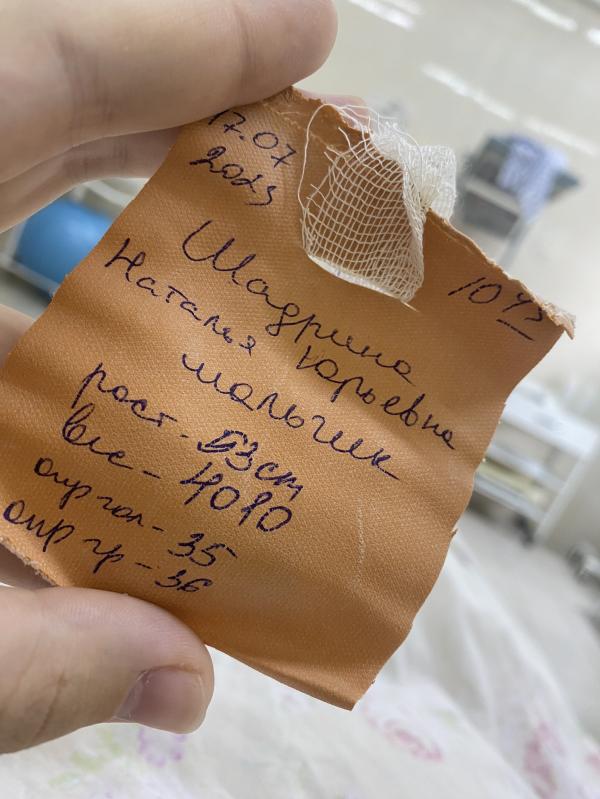 17.07
2023
10 43
Шадрина
Наталья Юрьевна
мальчик
рост - 53 см
вес - 4010
окр гол - 35
окр гр - 36